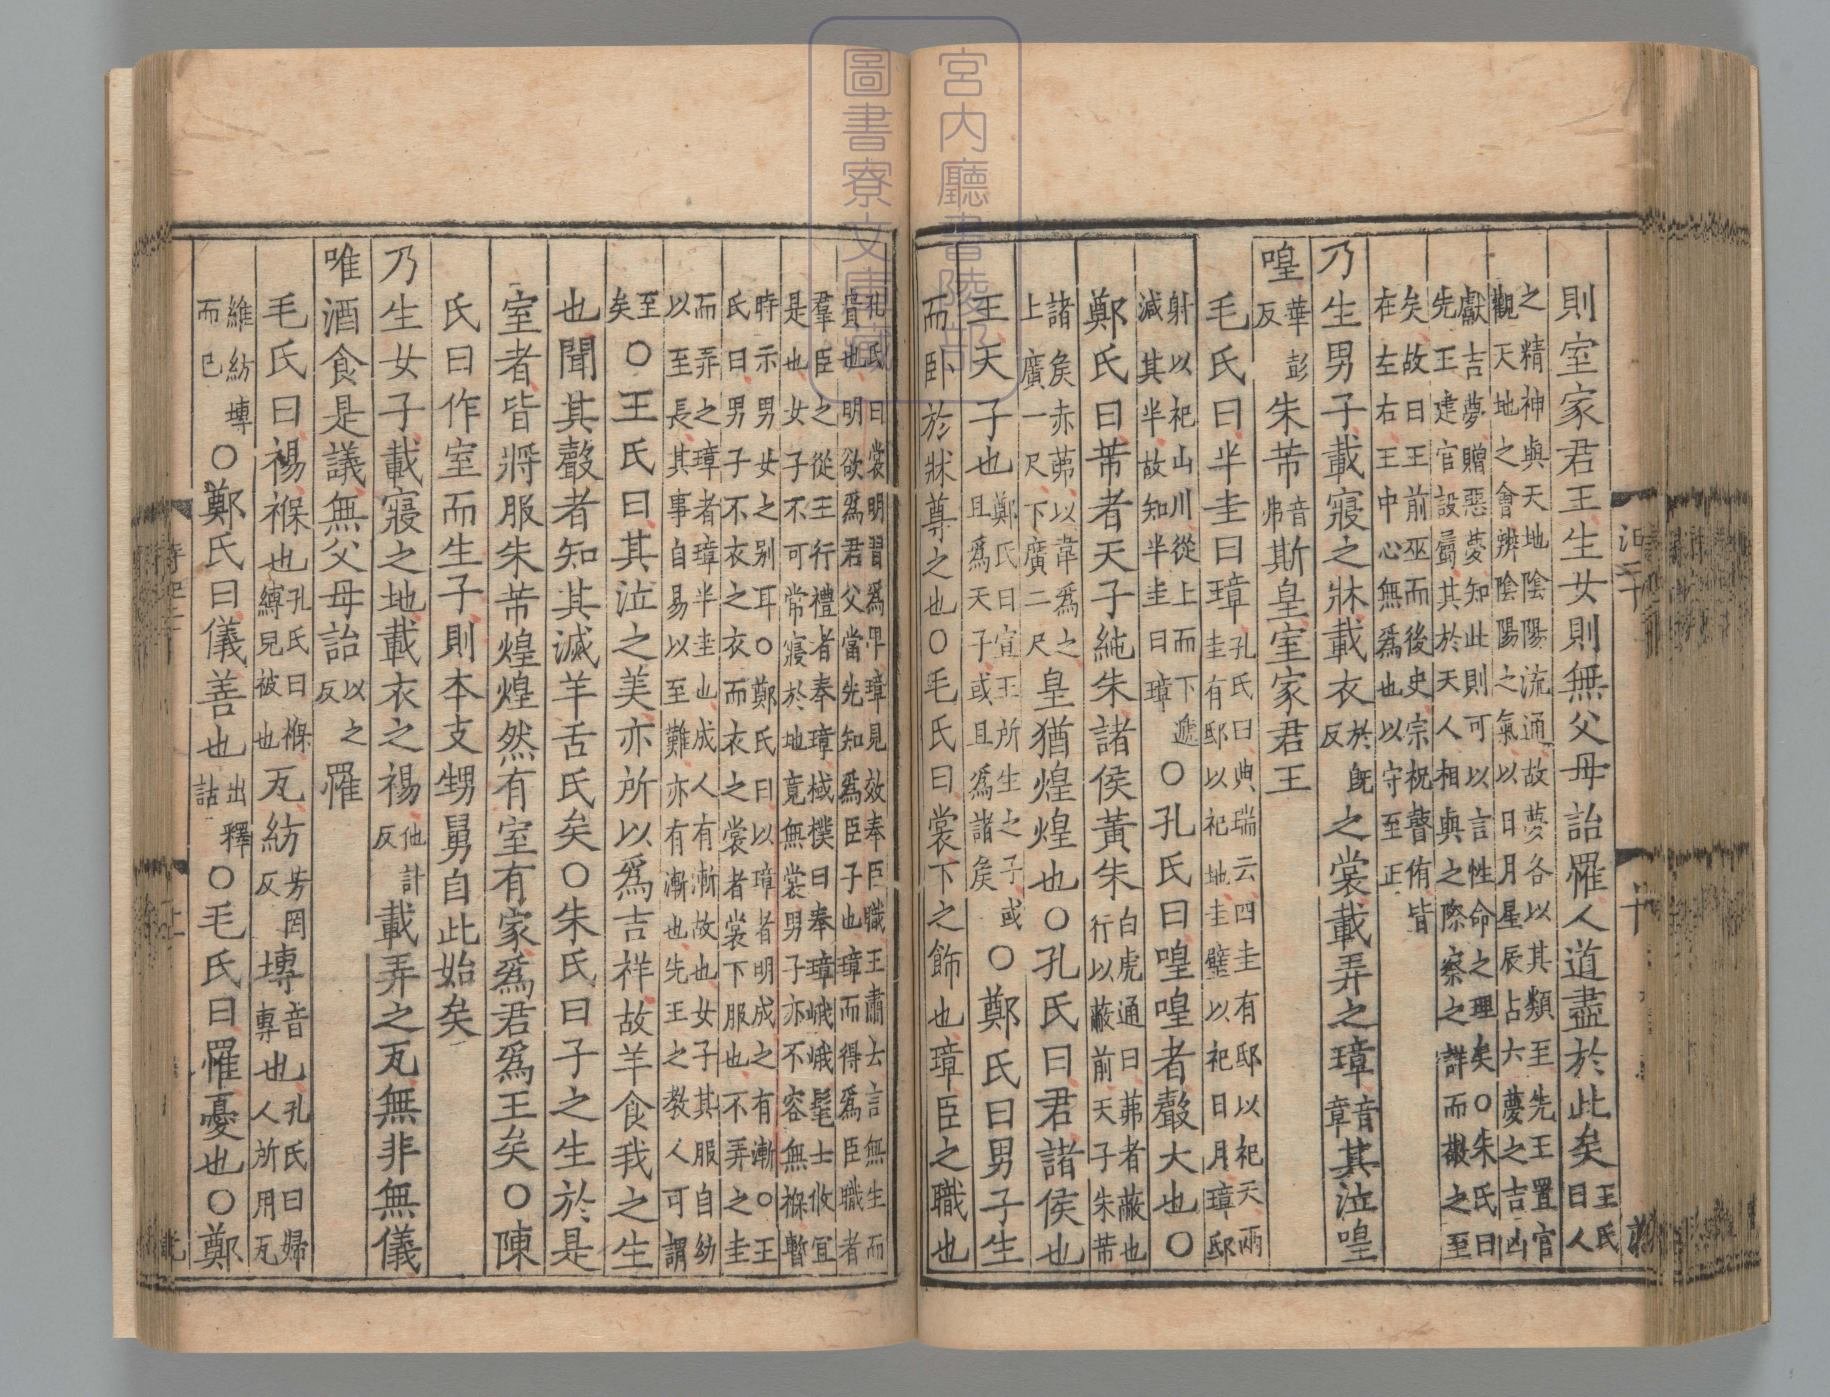 則室家君王生女則無父母詒罹人道盡於此矣王氏曰人
之精神與天地陰陽流通故夢各以其類至先王置官
觀天地之會辨陰陽之氣以日月星辰占六夢之吉凶
獻吉夢贈惡夢知此則可以言性命之理矣○朱氏曰
先王建官設屬其於天人相與之際察之詳而敬之至
矣故曰王前巫而後史宗祝瞽侑皆
在左右王中心無爲也以守至正
乃生男子載寢之牀載衣於既反之裳載弄之璋音章其泣喤
喤華彭反朱芾音弗斯皇室家君王
毛氏曰半圭曰璋孔氏曰典瑞云四圭有邸以祀天兩
圭有邸以祀地圭璧以祀日月璋邸
射以祀山川從上而下遞
減其半故知半圭曰璋○孔氏曰喤喤者聲大也○
鄭氏曰芾者天子純朱諸侯黃朱白虎通曰茀者蔽也
行以蔽前天子朱芾
諸矦赤茀以韋爲之
上廣一尺下廣二尺皇猶煌煌也○孔氏曰君諸侯也
王天子也鄭氏曰宣王所生之子或
且爲天子或且爲諸矦○鄭氏曰男子生
而卧於牀尊之也○毛氏曰裳下之飾也璋臣之職也
孔氏曰裳明習爲卑璋見效奉臣職王肅云言無生而
貴也明欲爲君父當先知爲臣子也璋而得爲臣職者
羣臣之從王行禮者奉璋棫樸曰奉璋峨峨髦士攸宜
是也女子不可常寢於地竟無裳男子亦不容無褓暫
時示男女之别耳○鄭氏曰以璋者明成之有漸○王
氏曰男子不衣之衣而衣之裳者裳下服也不弄之圭
而弄之璋者璋半圭也成人有漸故也女子其服自幼
以至長其事自易以至難亦有漸也先王之教人可謂
至矣○王氏曰其泣之美亦所以爲吉祥故羊食我之生
也聞其聲者知其滅羊舌氏矣○朱氏曰子之生於是
室者皆將服朱芾煌煌然有室有家爲君爲王矣○陳
氏曰作室而生子則本支甥舅自此始矣
乃生女子載寢之地載衣之裼他計反載弄之瓦無非無儀
唯酒食是議無父母詒以之反罹
毛氏曰裼褓也孔氏曰褓縛兒被也瓦紡芳罔反塼音專也孔氏曰婦人所用瓦
維紡塼而已○鄭氏曰儀善也出釋詁○毛氏曰罹憂也○鄭
宮内廳書陵部
圖書寮文庫藏